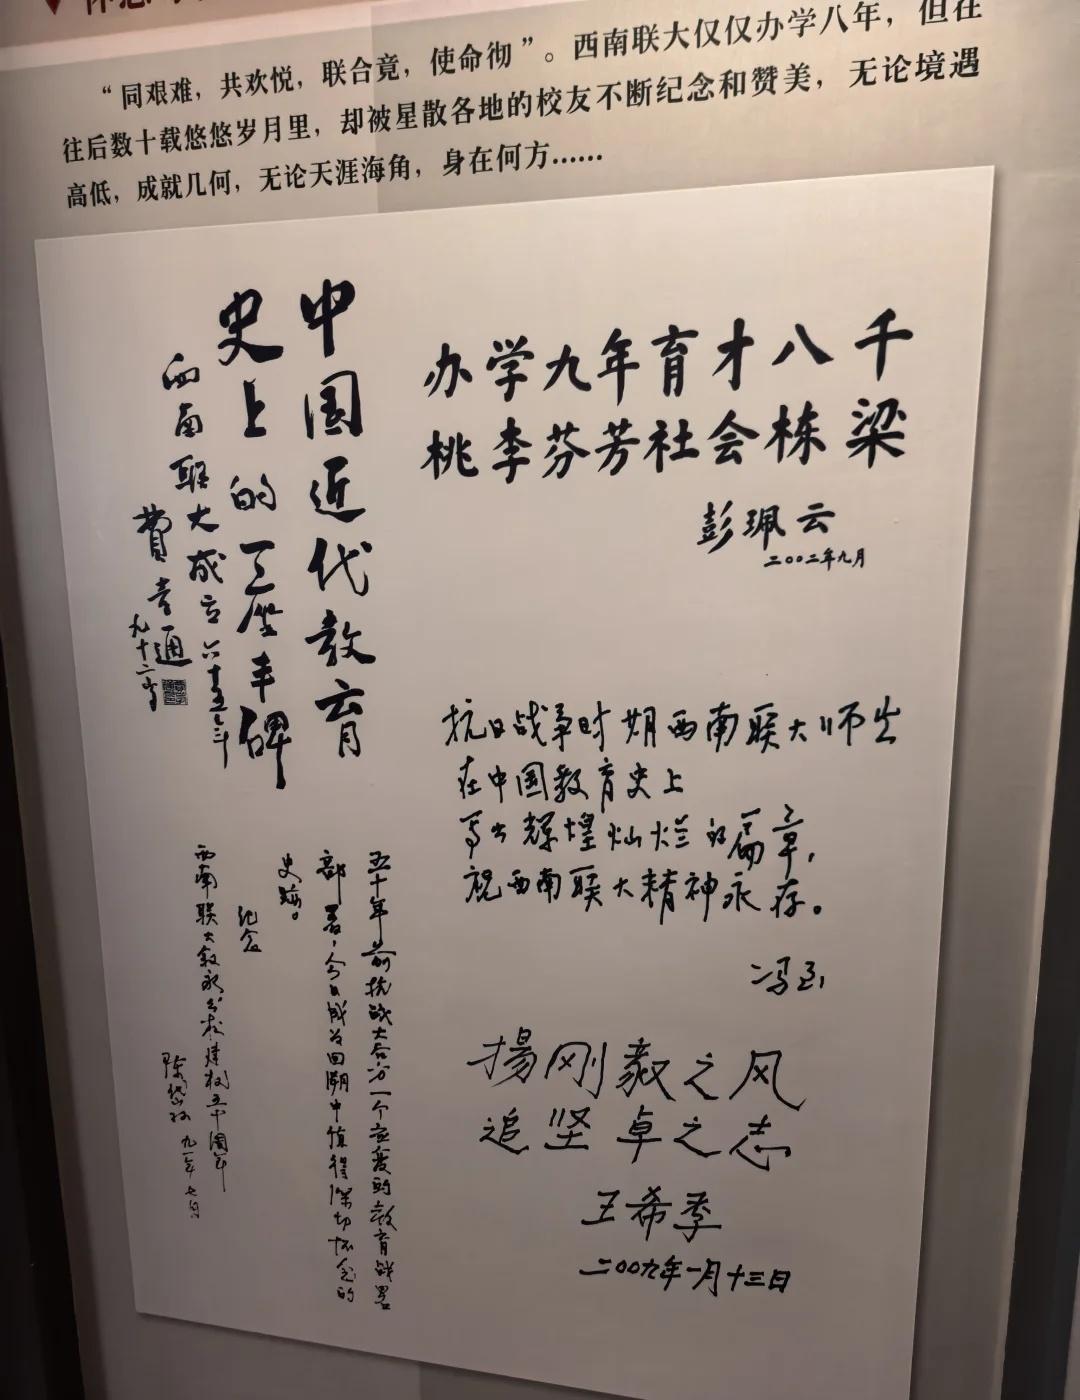 “同艰难，共欢悦，联合竟，使命彻”。西南联大仅仅办学八年，但在
往后数十载悠悠岁月里，却被星散各地的校友不断纪念和赞美，无论境遇
高低，成就几何，无论天涯海角，身在何方……
中国近代教育
史上的一座丰碑
西南联大成立六十五年
費孝通
九十二岁
办学九年育才八千
桃李芬芳社会栋梁
彭珮云
二〇〇二年九月
抗日战争时期西南联大师生
在中国教育史上
写出辉煌灿烂的篇章，
祝西南联大精神永存。
冯至
五十年前抗战大后方一个重要的教育战略
部署，今日成为回溯中值得深切怀念的
史迹。
纪念
西南联大叙永分校建校五十周年
陈岱孙 九一年七月
揚刚毅之风
追坚卓之志
王希季
二〇〇九年一月十三日